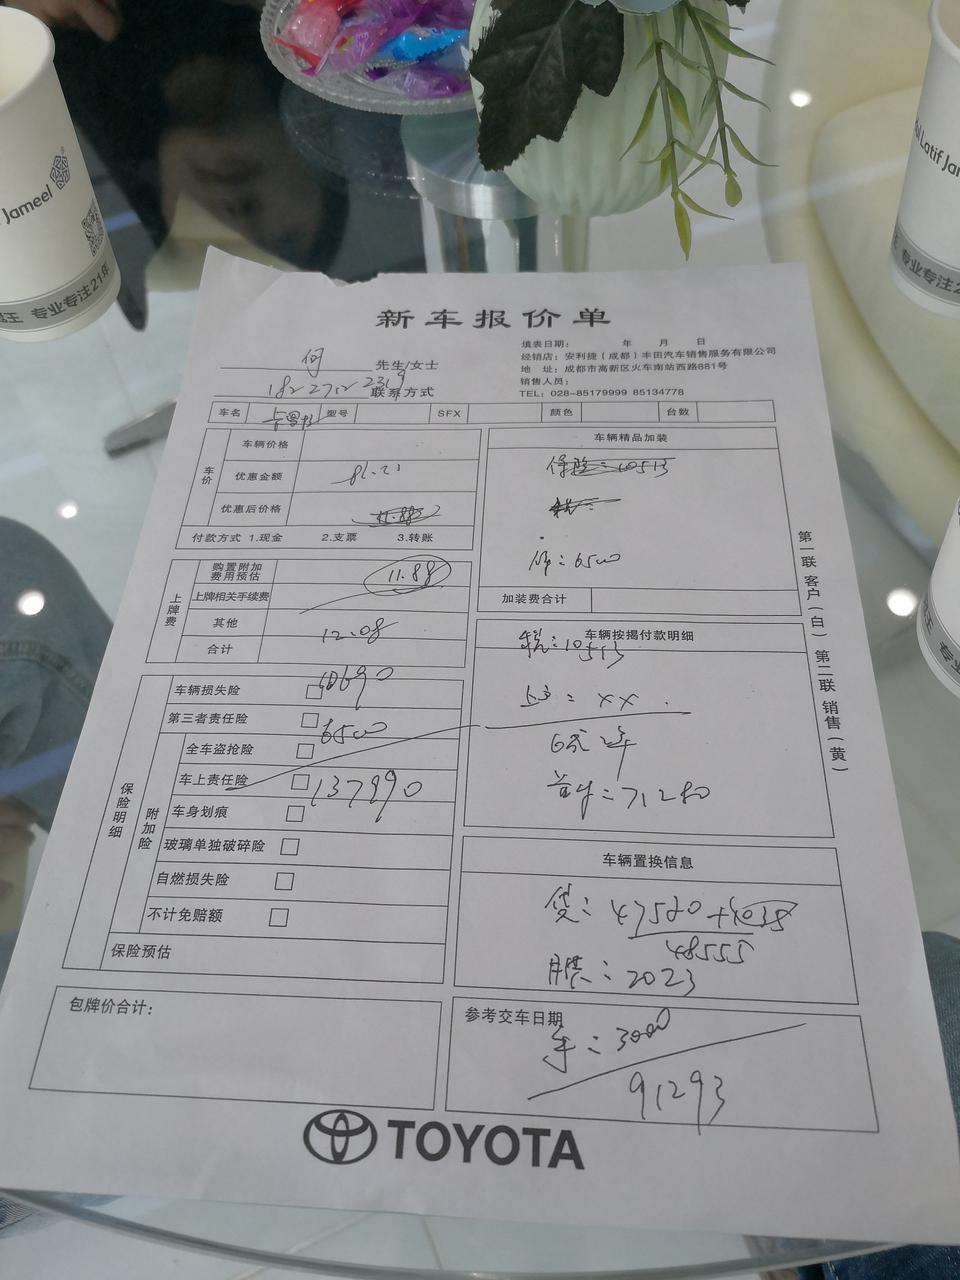 Jameel
专业专注21年
Latif Jam
专业专注2
新车报价单
何 先生/女士
182 2712 2319 联系方式
填表日期： 年 月 日
经销店：安利捷（成都）丰田汽车销售服务有限公司
地 址：成都市高新区火车南站西路881号
销售人员：
TEL：028-85179999 85134778
车名 卡罗拉 型号 SFX 颜色 台数
车价
车辆价格
优惠金额
优惠后价格
付款方式 1.现金 2.支票 3.转账
上牌费
购置附加费用预估 11.88
上牌相关手续费
其他 12.08
合计
保险明细
车辆损失险
第三者责任险 6500
附加险
全车盗抢险
车上责任险 137990
车身划痕
玻璃单独破碎险
自燃损失险
不计免赔额
保险预估
包牌价合计：
车辆精品加装
保险：10513
保：6500
加装费合计
车辆按揭付款明细
税：10513
上户：××
首付：71280
车辆置换信息
贷：47520+1035
48555
月供：2023
参考交车日期
手：3000
91293
第一联 客户（白） 第二联 销售（黄）
TOYOTA